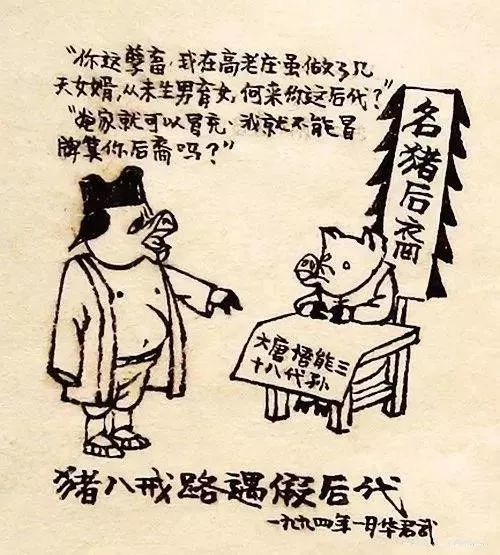 "你这孽畜,我在高老庄虽做了几
天女婿,从未生男育女,何来你这后代?"
"家就可以冒充,我就不能冒
牌算你后裔吗?"
名猪后裔
大唐悟能三
十八代孙
猪八戒路遇假后代
一九九四年一月华君武